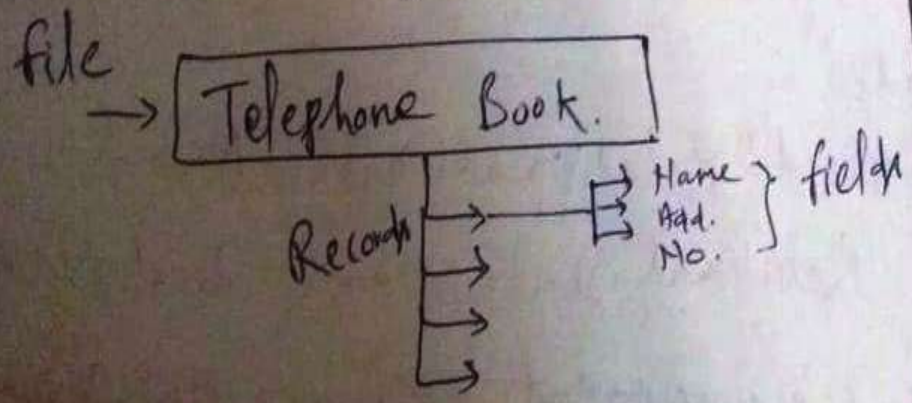 file
→ Telephone Book.
Records
Name
Add.
No.
fields